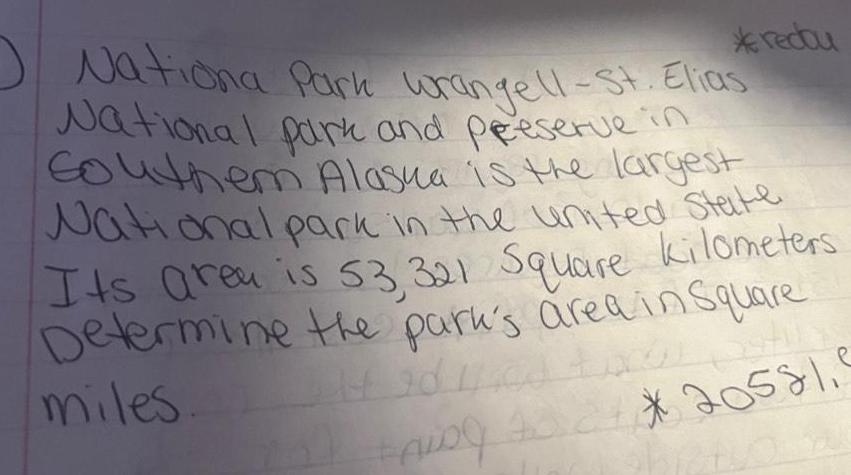 *redou
Nationa Park Wrangell-St. Elias
National park and preserve in
Southern Alaska is the largest
National park in the united State
Its area is 53,321 Square kilometers
Determine the park's area in Square
miles.
* 20581.